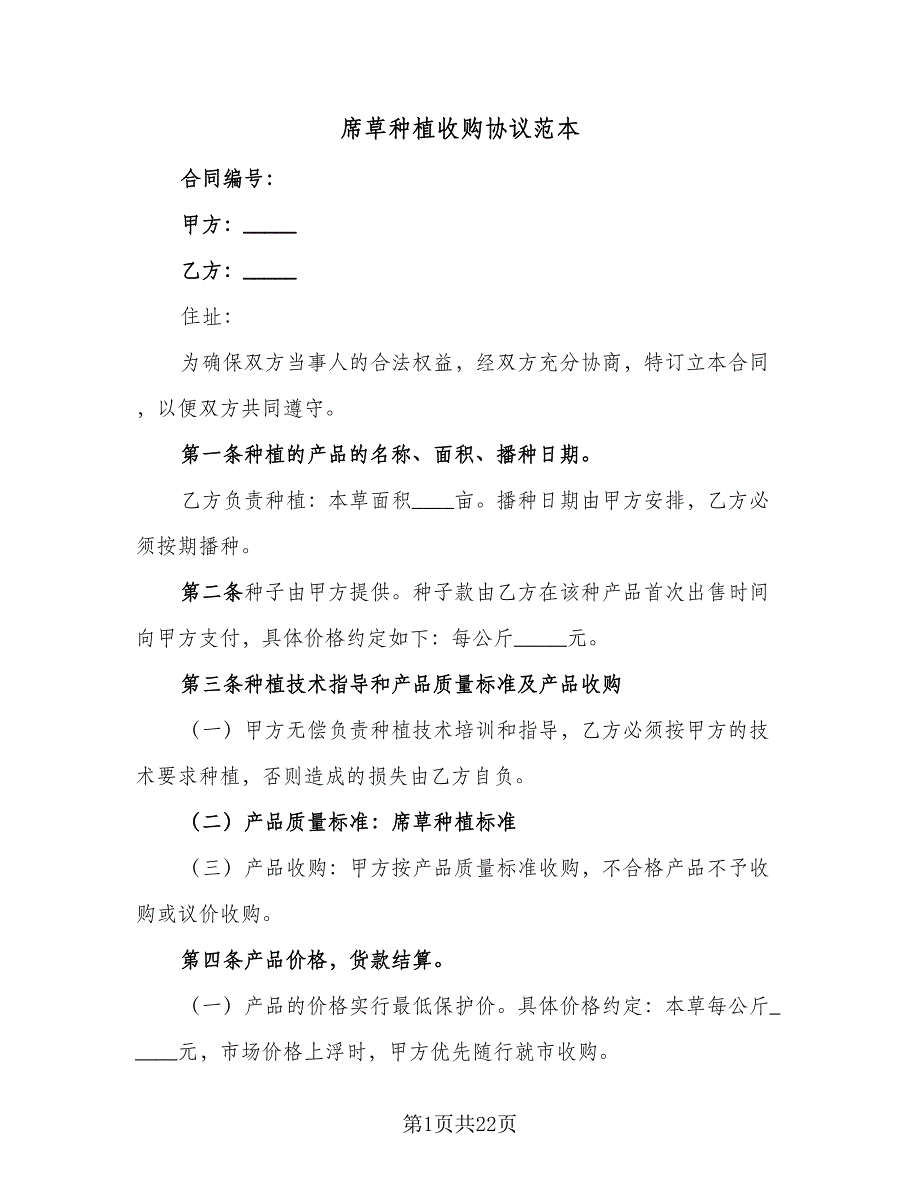 席草种植收购协议范本
合同编号：
甲方：_____
乙方：_____
住址：
为确保双方当事人的合法权益，经双方充分协商，特订立本合同
，以便双方共同遵守。
第一条种植的产品的名称、面积、播种日期。
乙方负责种植：本草面积____亩。播种日期由甲方安排，乙方必
须按期播种。
第二条种子由甲方提供。种子款由乙方在该种产品首次出售时间
向甲方支付，具体价格约定如下：每公斤_____元。
第三条种植技术指导和产品质量标准及产品收购
（一）甲方无偿负责种植技术培训和指导，乙方必须按甲方的技
术要求种植，否则造成的损失由乙方自负。
（二）产品质量标准：席草种植标准
（三）产品收购：甲方按产品质量标准收购，不合格产品不予收
购或议价收购。
第四条产品价格，货款结算。
（一）产品的价格实行最低保护价。具体价格约定：本草每公斤_
____元，市场价格上浮时，甲方优先随行就市收购。
第1页共22页